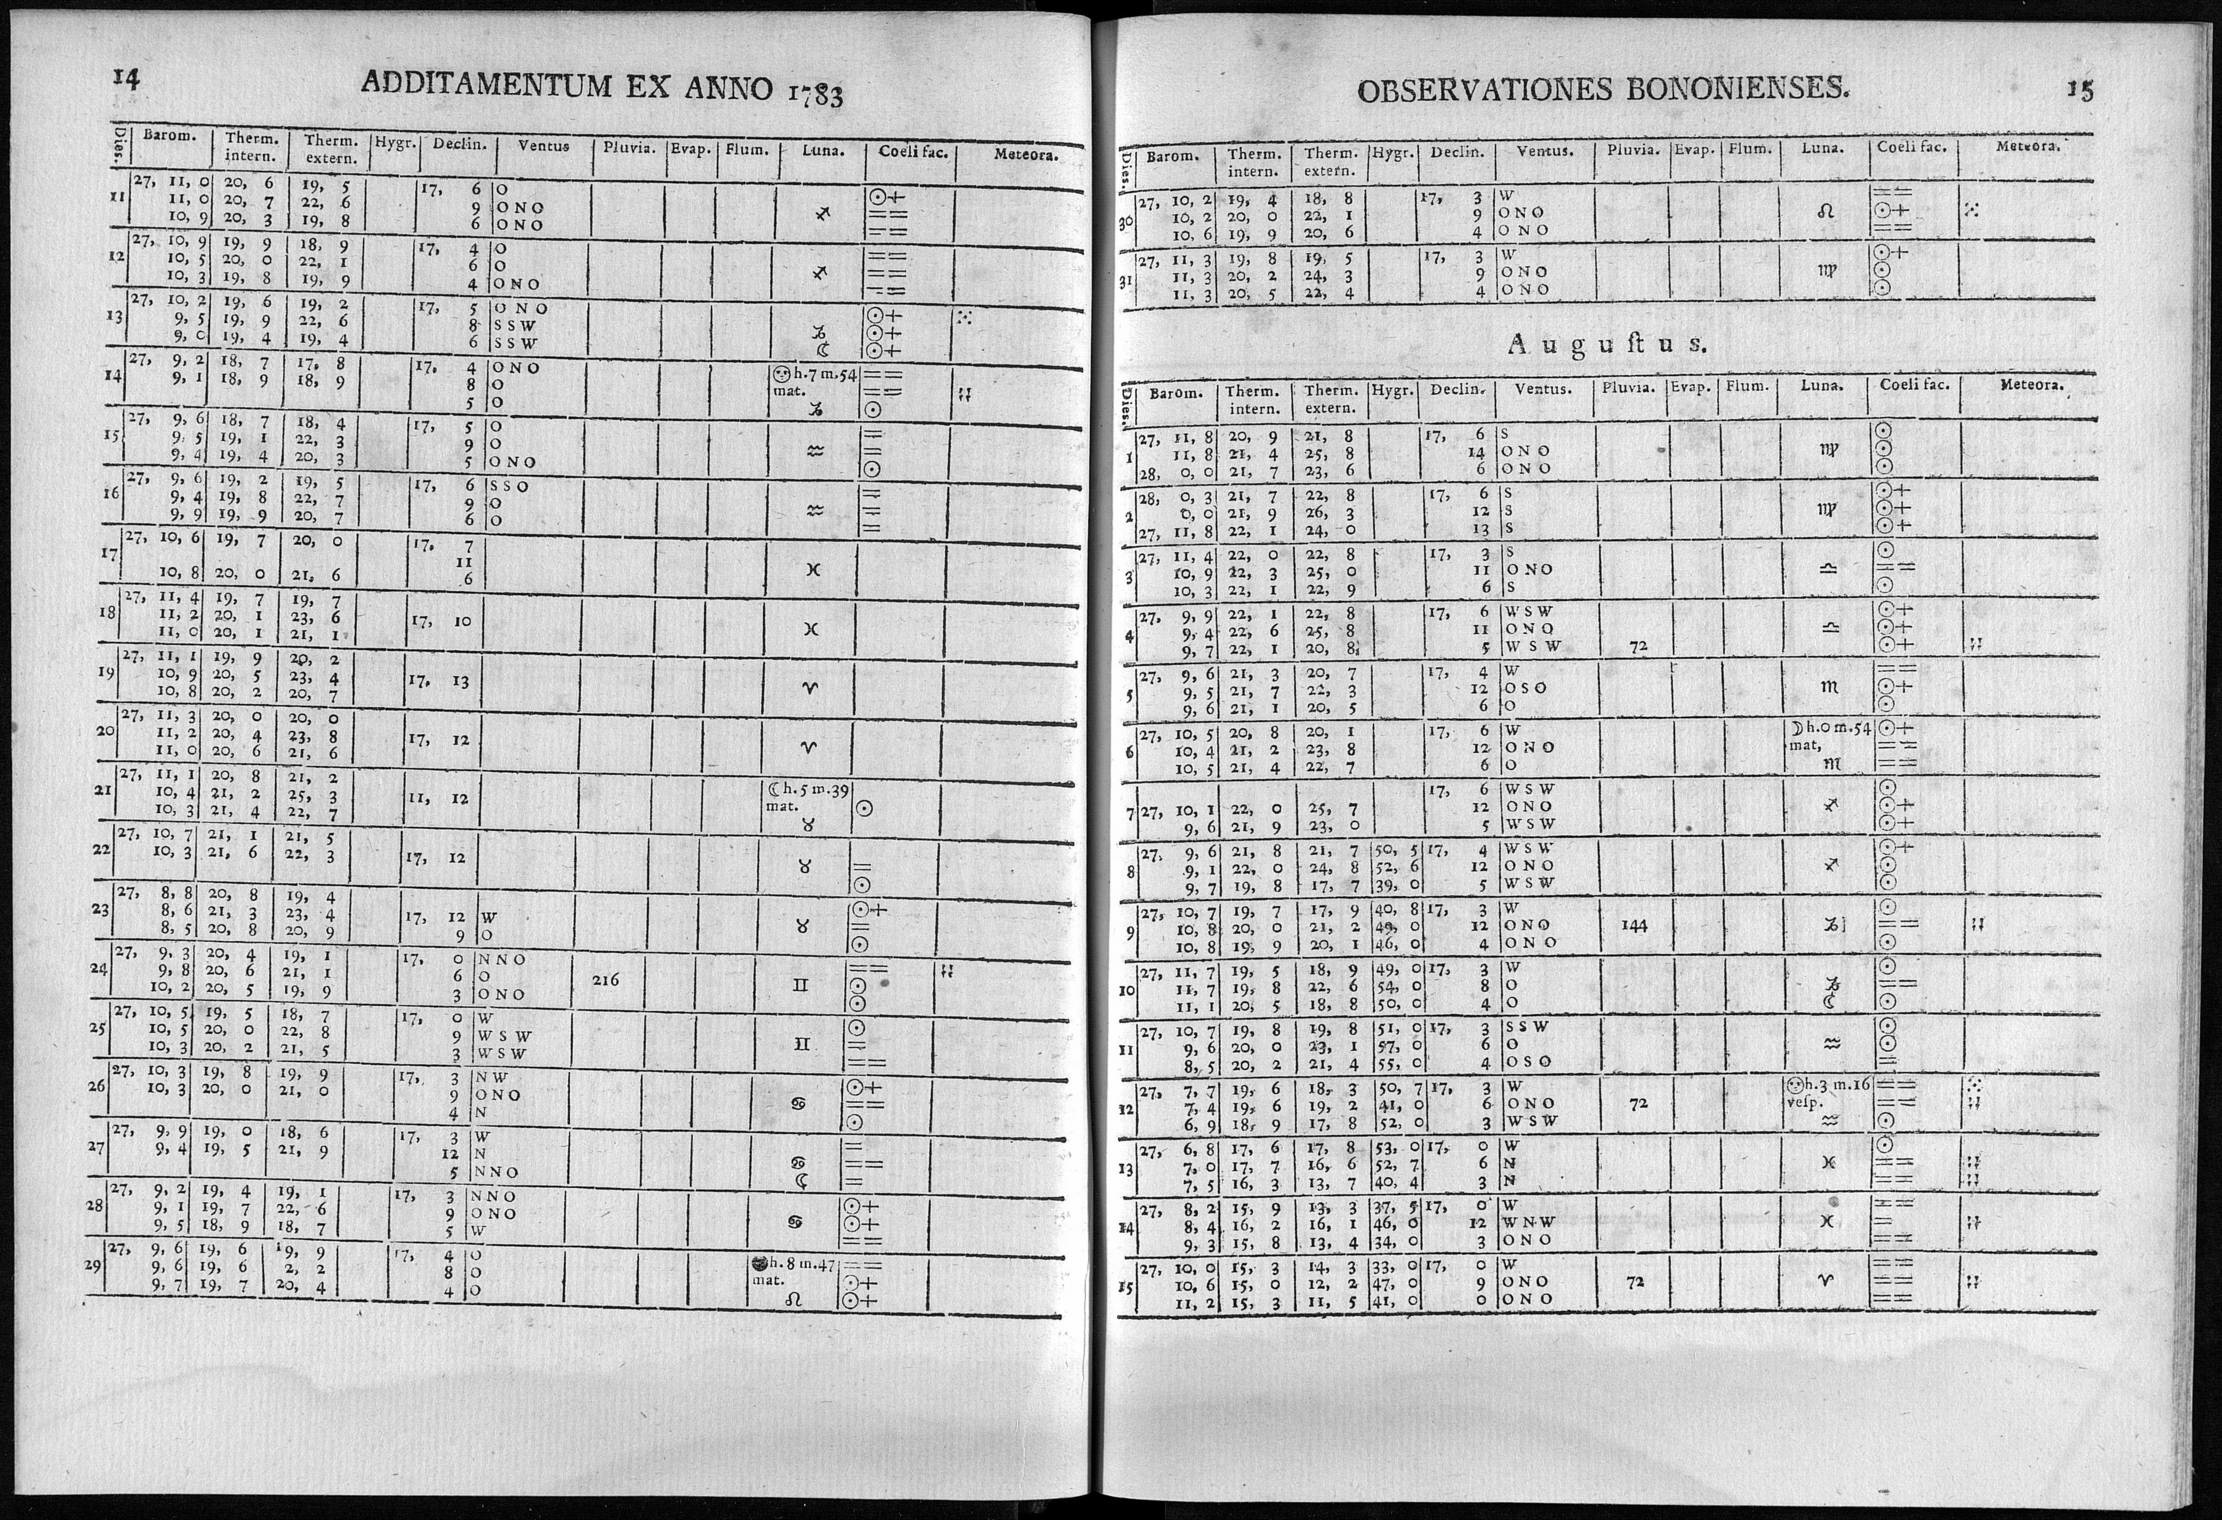 14 ADDITAMENTUM EX ANNO 1783
Dies. Barom. Therm. intern. Therm. extern. Hygr. Declin. Ventus Pluvia. Evap. Flum. Luna. Coeli fac. Meteora.
27, 11, 0 20, 6 19, 5 17, 6 O ☉+
11 11, 0 20, 7 22, 6 9 ONO ♐ ==
10, 9 20, 3 19, 8 6 ONO ==
27, 10, 9 19, 9 18, 9 17, 4 O ==
12 10, 5 20, 0 22, 1 6 O ♐ ==
10, 3 19, 8 19, 9 4 ONO ==
27, 10, 2 19, 6 19, 2 17, 5 ONO ☉+
13 9, 5 19, 9 22, 6 8 SSW ♑ ☉+
9, 0 19, 4 19, 4 6 SSW ☾ ☉+
27, 9, 2 18, 7 17, 8 17, 4 ONO h. 7 m. 54 ==
14 9, 1 18, 9 18, 9 8 O mat. ==
5 O ♑ ☉
27, 9, 6 18, 7 18, 4 17, 5 O =
15 9, 5 19, 1 22, 3 9 O ♒ =
9, 4 19, 4 20, 3 5 ONO ☉
27, 9, 6 19, 2 19, 5 17, 6 SSO =
16 9, 4 19, 8 22, 7 9 O ♒ =
9, 9 19, 9 20, 7 6 O =
27, 10, 6 19, 7 20, 0 17, 7
17 11 ♓
10, 8 20, 0 21, 6 6
27, 11, 4 19, 7 19, 7
18 11, 2 20, 1 23, 6 17, 10 ♓
11, 0 20, 1 21, 1
27, 11, 1 19, 9 20, 2
19 10, 9 20, 5 23, 4 17, 13 ♈
10, 8 20, 2 20, 7
27, 11, 3 20, 0 20, 0
20 11, 2 20, 4 23, 8 17, 12 ♈
11, 0 20, 6 21, 6
27, 11, 1 20, 8 21, 2 ☾ h. 5 m. 39
21 10, 4 21, 2 25, 3 11, 12 mat. ☉
10, 3 21, 4 22, 7 ♉
27, 10, 7 21, 1 21, 5
22 10, 3 21, 6 22, 3 17, 12 ♉ =
☉
27, 8, 8 20, 8 19, 4 ☉+
23 8, 6 21, 3 23, 4 17, 12 W ♉ =
8, 5 20, 8 20, 9 9 O ☉
27, 9, 3 20, 4 19, 1 17, 0 NNO ==
24 9, 8 20, 6 21, 1 6 O 216 ♊ ☉
10, 2 20, 5 19, 9 3 ONO ☉
27, 10, 5 19, 5 18, 7 17, 0 W ☉
25 10, 5 20, 0 22, 8 9 WSW ♊ =
10, 3 20, 2 21, 5 3 WSW ==
27, 10, 3 19, 8 19, 9 17, 3 NW ☉+
26 10, 3 20, 0 21, 0 9 ONO ♋ ==
4 N ☉
27, 9, 9 19, 0 18, 6 17, 3 W =
27 9, 4 19, 5 21, 9 12 N ♋ ==
5 NNO ☾ =
27, 9, 2 19, 4 19, 1 17, 3 NNO ☉+
28 9, 1 19, 7 22, 6 9 ONO ♋ ☉+
9, 5 18, 9 18, 7 5 W ==
27, 9, 6 19, 6 19, 9 17, 4 O h. 8 m. 47 ==
29 9, 6 19, 6 2, 2 8 O mat. ☉+
9, 7 19, 7 20, 4 4 O ♌ ☉+
OBSERVATIONES BONONIENSES. 15
Dies. Barom. Therm. intern. Therm. extern. Hygr. Declin. Ventus. Pluvia. Evap. Flum. Luna. Coeli fac. Meteora.
27, 10, 2 19, 4 18, 8 17, 3 W ==
30 10, 2 20, 0 22, 1 9 ONO ♌ ☉+
10, 6 19, 9 20, 6 4 ONO ==
27, 11, 3 19, 8 19, 5 17, 3 W ☉+
31 11, 3 20, 2 24, 3 9 ONO ♍ ☉
11, 3 20, 5 22, 4 4 ONO ☉
Auguſtus.
Dies. Barom. Therm. intern. Therm. extern. Hygr. Declin. Ventus. Pluvia. Evap. Flum. Luna. Coeli fac. Meteora.
27, 11, 8 20, 9 21, 8 17, 6 S ☉
1 11, 8 21, 4 25, 8 14 ONO ♍ ☉
28, 0, 0 21, 7 23, 6 6 ONO ☉
28, 0, 3 21, 7 22, 8 17, 6 S ☉+
2 0, 0 21, 9 26, 3 12 S ♍ ☉+
27, 11, 8 22, 1 24, 0 13 S ☉+
27, 11, 4 22, 0 22, 8 17, 3 S ☉
3 10, 9 22, 3 25, 0 11 ONO ♎ ==
10, 3 22, 1 22, 9 6 S ☉
27, 9, 9 22, 1 22, 8 17, 6 WSW ☉+
4 9, 4 22, 6 25, 8 11 ONO ♎ ☉+
9, 7 22, 1 20, 8 5 WSW 72 ☉+
27, 9, 6 21, 3 20, 7 17, 4 W ==
5 9, 5 21, 7 22, 3 12 OSO ♏ ☉+
9, 6 21, 1 20, 5 6 O ☉
27, 10, 5 20, 8 20, 1 17, 6 W ☽ h. 0 m. 54 ☉+
6 10, 4 21, 2 23, 8 12 ONO mat, ==
10, 5 21, 4 22, 7 6 O ♏ ==
17, 6 WSW ☉
7 27, 10, 1 22, 0 25, 7 12 ONO ♐ ☉+
9, 6 21, 9 23, 0 5 WSW ☉+
27, 9, 6 21, 8 21, 7 50, 5 17, 4 WSW ☉+
8 9, 1 22, 0 24, 8 52, 6 12 ONO ♐ ☉
9, 7 19, 8 17, 7 39, 0 5 WSW ☉
27, 10, 7 19, 7 17, 9 40, 8 17, 3 W ☉
9 10, 8 20, 0 21, 2 49, 0 12 ONO 144 ♑ ==
10, 8 19, 9 20, 1 46, 0 4 ONO ☉
27, 11, 7 19, 5 18, 9 49, 0 17, 3 W ☉
10 11, 7 19, 8 22, 6 54, 0 8 O ♑ ==
11, 1 20, 5 18, 8 50, 0 4 O ☾ ☉
27, 10, 7 19, 8 19, 8 51, 0 17, 3 SSW ☉
11 9, 6 20, 0 23, 1 57, 0 6 O ♒ ☉
8, 5 20, 2 21, 4 55, 0 4 OSO =
27, 7, 7 19, 6 18, 3 50, 7 17, 3 W h. 3 m. 16 ==
12 7, 4 19, 6 19, 2 41, 0 6 ONO 72 veſp. ==
6, 9 18, 9 17, 8 52, 0 3 WSW ♒ ☉
27, 6, 8 17, 6 17, 8 53, 0 17, 0 W ☉
13 7, 0 17, 7 16, 6 52, 7 6 N ♓ ==
7, 5 16, 3 13, 7 40, 4 3 N ==
27, 8, 2 15, 9 13, 3 37, 5 17, 0 W ==
14 8, 4 16, 2 16, 1 46, 0 12 WNW ♓ =
9, 3 15, 8 13, 4 34, 0 3 ONO ==
27, 10, 0 15, 3 14, 3 33, 0 17, 0 W ==
15 10, 6 15, 0 12, 2 47, 0 9 ONO 72 ♈ ==
11, 2 15, 3 11, 5 41, 0 0 ONO ==